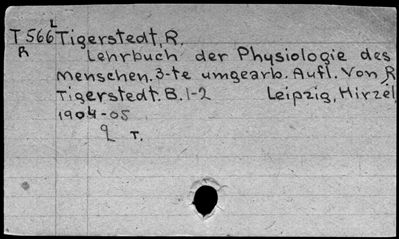 L
T 566 Tigerstedt, R.
R Lehrbuch der Physiologie des
Menschen. 3-te umgearb. Aufl. Von R
Tigerstedt. B. 1-2 Leipzig, Hirzel,
1904-05
2 T.